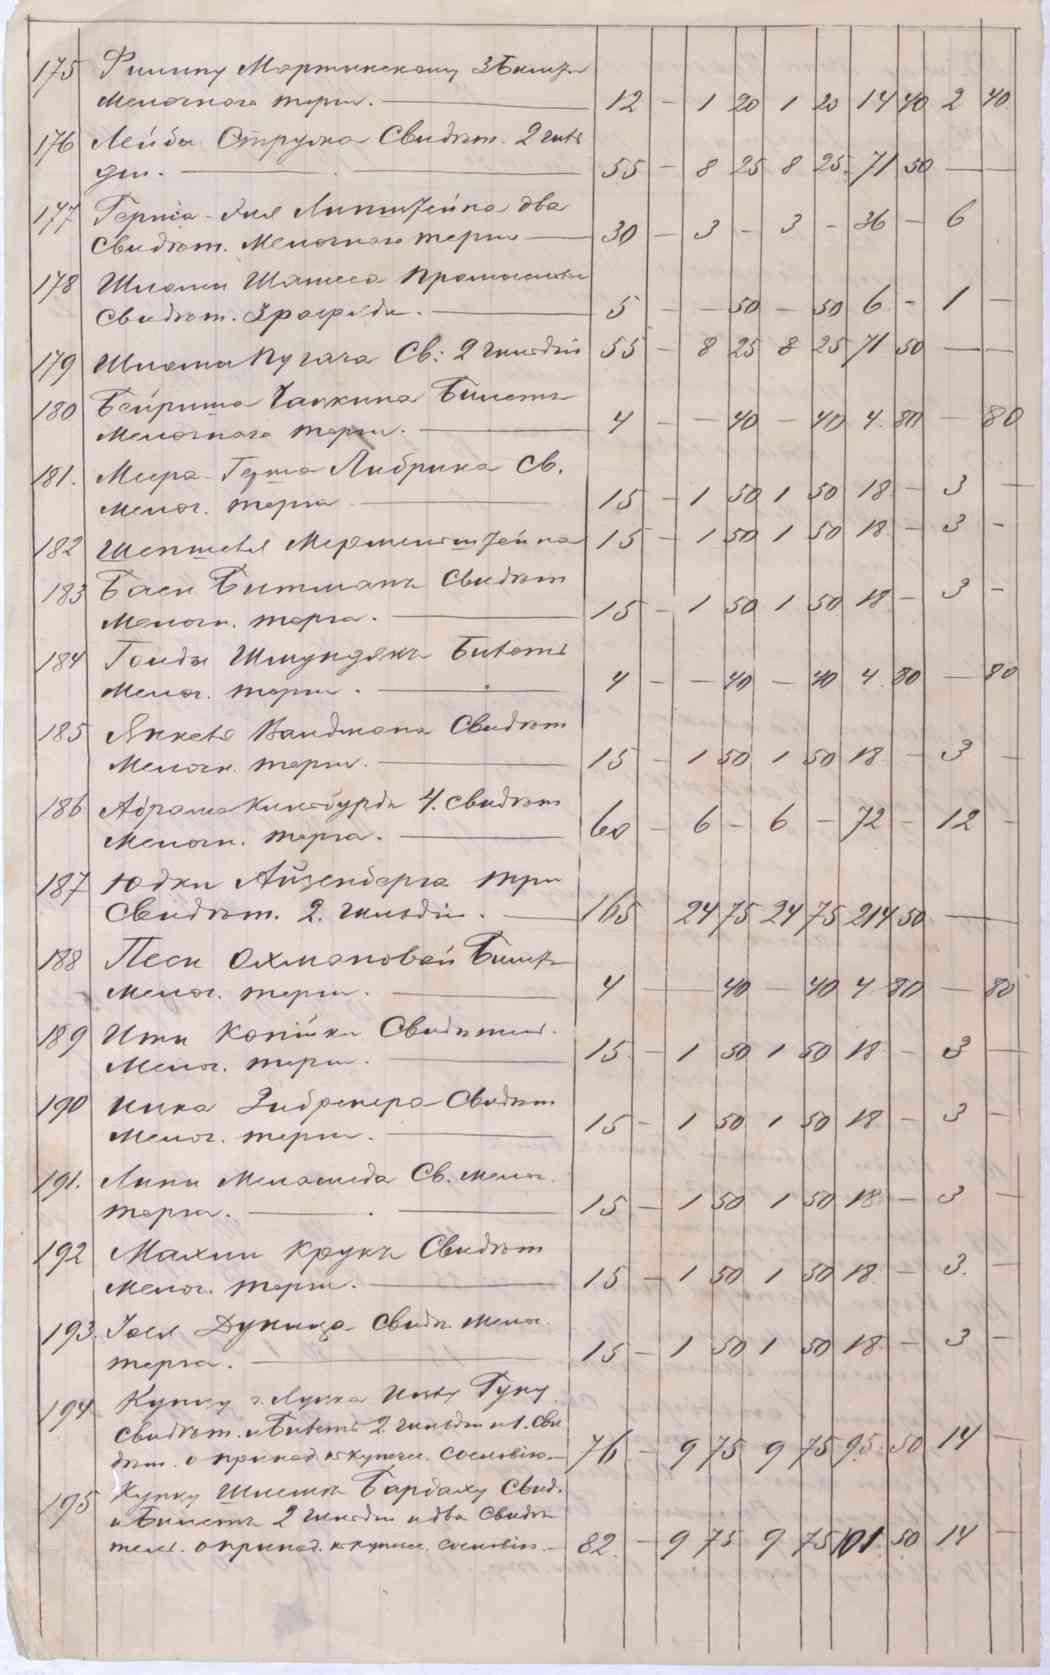 175 Филипу Мартинскому 3 Билета
Мелочного торга. 12 - 1 20 1 20 14 40 2 40
176 Лейбы Струлка Свидѣт. 2 гил
діи. 55 - 8 25 8 25 71 50 — —
177 Герша-Эля Липштейна два
Свидѣт. Мелочного торга 30 - 3 - 3 - 36 - 6
178 Шломы Промысловое
Свидѣт. 3 разряда. 5 - - 50 - 50 6 - 1 -
179 Шломы Пугача Св: 2 гильдіи 55 - 8 25 8 25 71 50 — —
180 Бейриша Чапкина Билетъ
Мелочного торга. 4 - - 40 - 40 4 80 - 80
181. Меера Либрика Св.
мелоч. торга 15 - 1 50 1 50 18 - 3 -
182 15 - 1 50 1 50 18 - 3 -
183 Баси Битманъ Свидѣт
Мелочн. торга. 15 - 1 50 1 50 18 - 3 -
184 Гольды Билетъ
Мелоч. торга. 4 - - 40 - 40 4 80 - 80
185 Янкеля Вайдмана Свидѣт
Мелочн. торга. 15 - 1 50 1 50 18 - 3 -
186 Абрама 4. свидѣт
Мелочн. торга. 60 - 6 - 6 - 72 - 12 -
187 Юдки Айзенберга три
Свидѣт. 2. гильдіи. 165 24 75 24 75 214 50 —
188 Песи Охмановой Билетъ
Мелоч. торга. 4 - - 40 - 40 4 80 - 80
189 Ити Копійки Свидѣтел.
Мелоч. торга. 15 - 1 50 1 50 18 - 3 -
190 Ицка Свидѣт
Мелоч. торга. 15 - 1 50 1 50 18 - 3 -
191. Меламеда Св. мелоч.
торга. 15 - 1 50 1 50 18 - 3 -
192 Махли Крукъ Свидѣт
мелоч. торга. 15 - 1 50 1 50 18 - 3. -
193. Іося Свидѣ. мелоч.
торга. 15 - 1 50 1 50 18 - 3 -
194 Купцу г. Луцка Гуку
свидѣт. и Билетъ 2 гильдіи и 1. сви
дѣт. о принад. къ купеч. сословію 76 - 9 75 9 75 95 50 14 -
195 Купцу Шлемѣ Бардаху Свид.
и Билетъ 2 гильдіи и два Свидѣ
тел. о принад. къ купеч. сословію 82. - 9 75 9 75 101 50 14 -